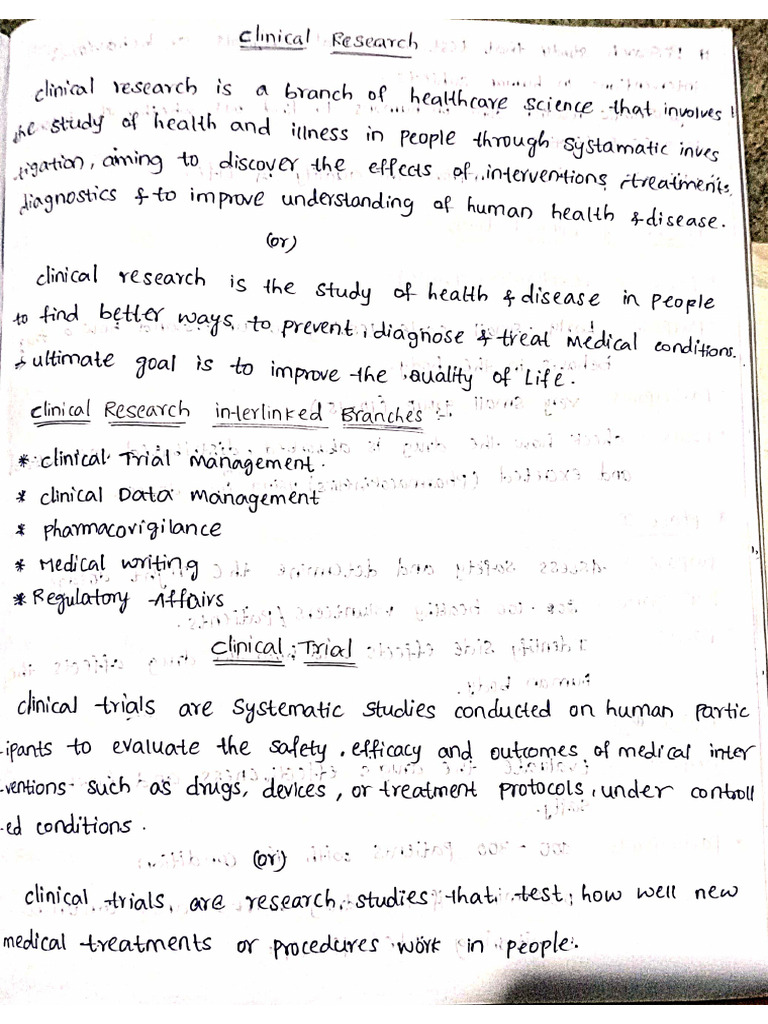 Clinical Research
clinical research is a branch of healthcare science that involves
the study of health and illness in people through systamatic inves
tigation, aiming to discover the effects of interventions, treatments,
diagnostics & to improve understanding of human health & disease.
(or)
clinical research is the study of health & disease in people
to find better ways to prevent, diagnose & treat Medical conditions.
ultimate goal is to improve the quality of Life.
Clinical Research interlinked Branches :-
* clinical Trial Management.
* clinical Data Management
* pharmacovigilance
* Medical writing
* Regulatory Affairs
Clinical Trial
clinical trials are systematic studies conducted on human partic
-ipants to evaluate the safety, efficacy and outcomes of medical inter
-ventions such as drugs, devices, or treatment protocols, under controll
-ed conditions.
(or)
clinical trials, are research studies that test, how well new
medical treatments or procedures work in people.